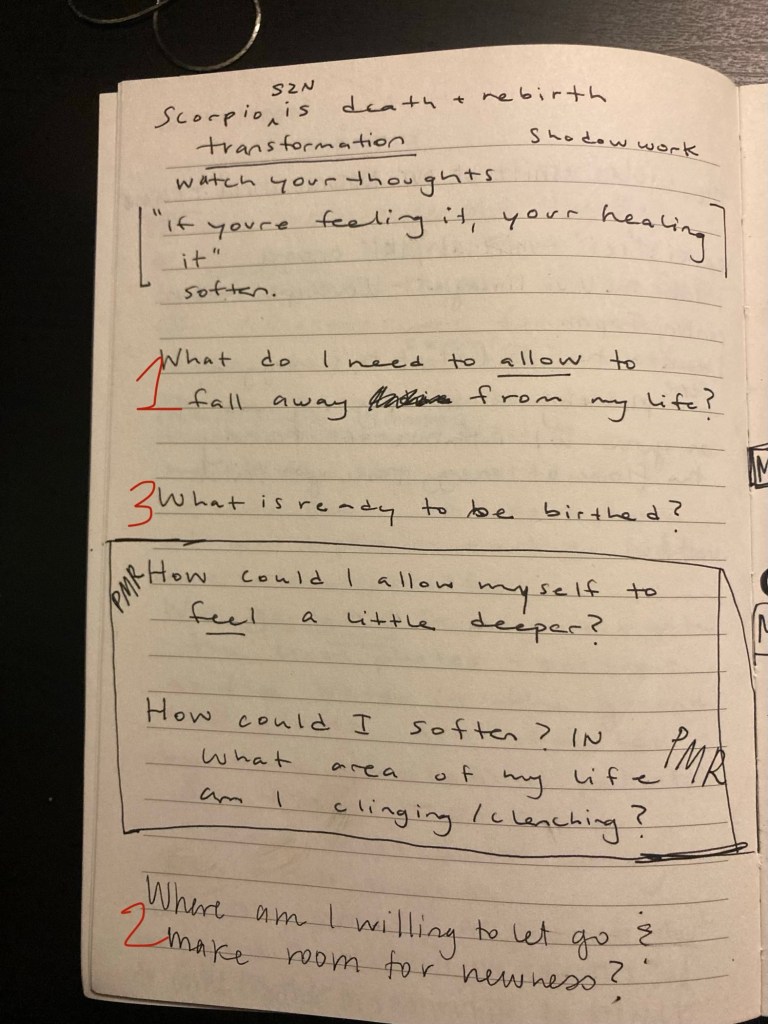 Scorpio ^SZN is death + rebirth
transformation
Shadow work
watch your thoughts
["If youre feeling it, your healing
it"]
soften.
1 What do I need to allow to
fall away from my life?
3 What is ready to be birthed?
PMR
How could I allow myself to
feel a little deeper?
How could I soften? IN
what area of my life
am I clinging/clenching?
PMR
2 Where am I willing to let go &
make room for newness?
M
M